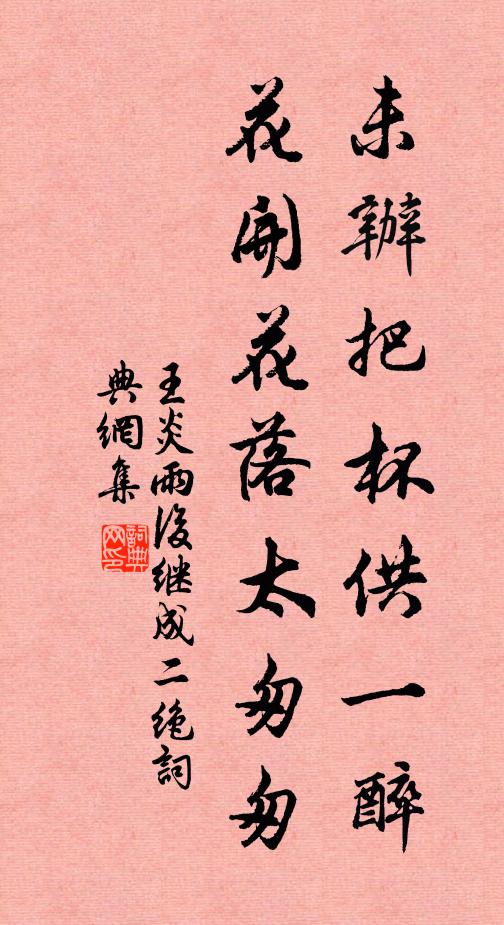 未辦把杯供一醉
花開花落太匆匆
王炎雨後继成二绝詞
典網集
詞典
网印